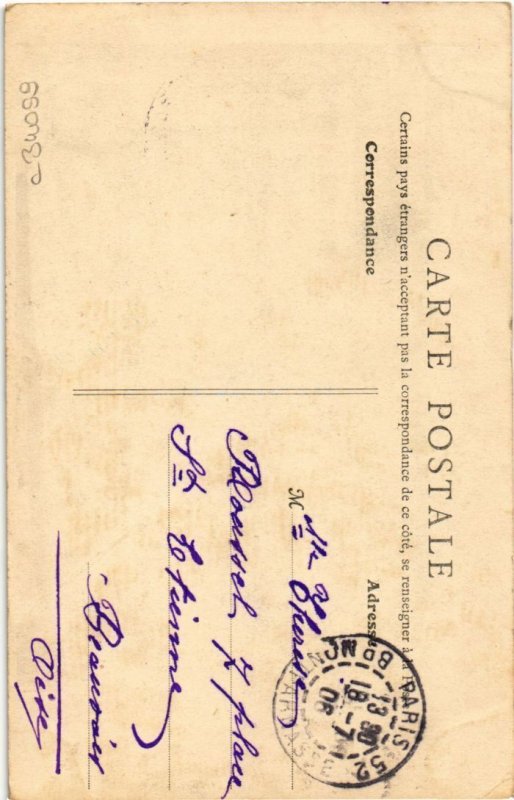 CARTE POSTALE
Certains pays étrangers n'acceptant pas la correspondance de ce côté, se renseigner à la
Correspondance
Adresse
Mlle Thérèse
Roussel, 7 place
St Etienne
Beauvais
Oise
PARIS 52
BD MONTPARNASSE
13 30
18 - 7
06